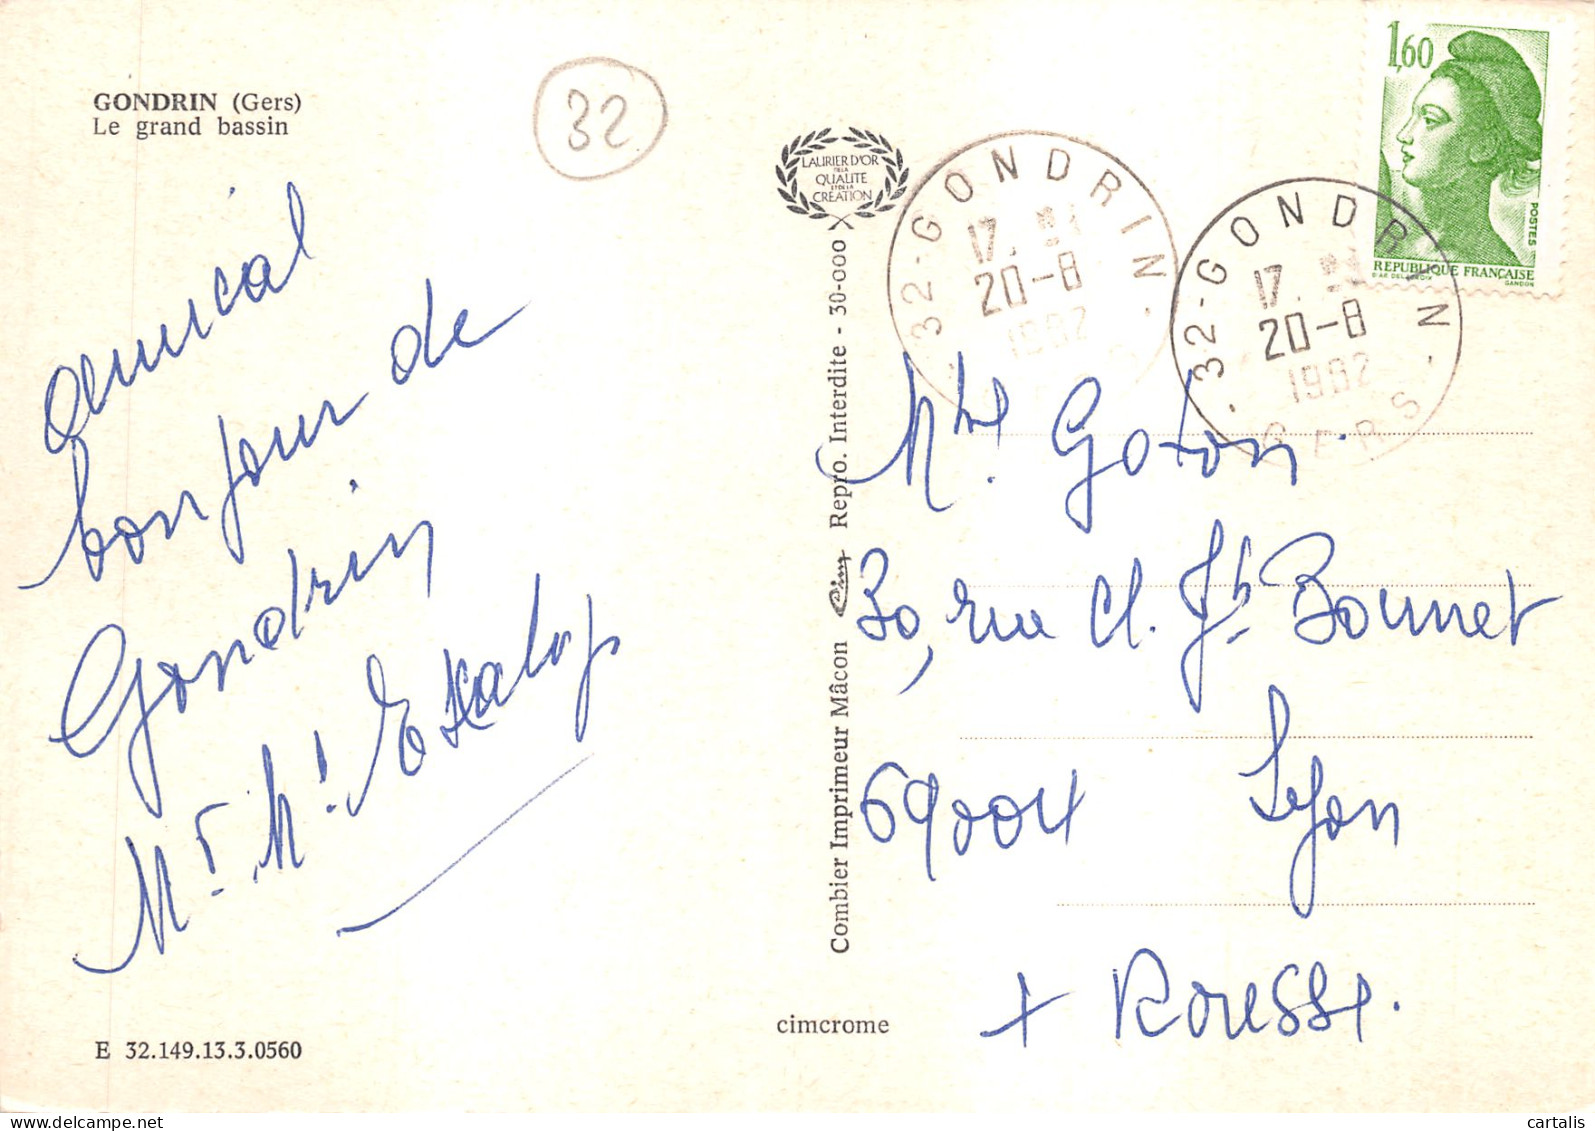 GONDRIN (Gers)
Le grand bassin
32
amical
bonjour de
Gondrin
Mr. M
LAURIER D'OR
DE LA
QUALITE
ET DE LA
CREATION
Combier Imprimeur Mâcon Cim Repro. Interdite - 30-000
cimcrome
E 32.149.13.3.0560
32-GONDRIN
17.
20-8
1982
32-GONDRIN
17.
20-8
1982
GERS
1,60
POSTES
REPUBLIQUE FRANÇAISE
D'AP. DELACROIX
GANDON
Mme Goton
30, rue Cl. Jh Bonnet
69004 Lyon
+ Rousse.
cartalis cartalis.com